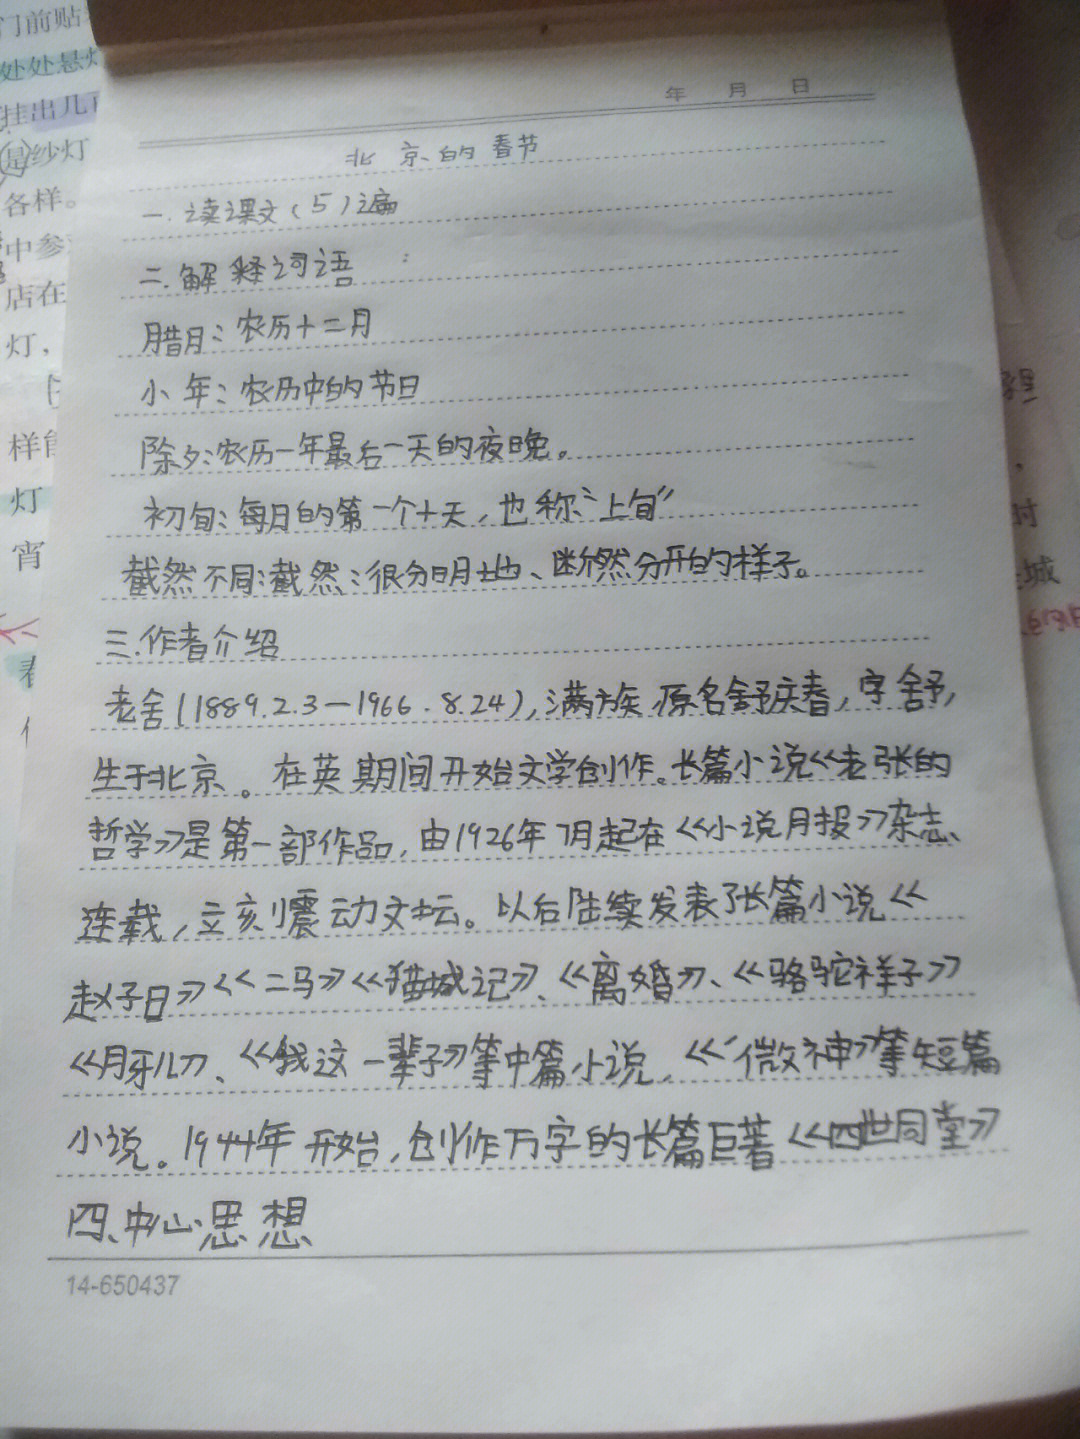 门前贴
处处悬灯
挂出几
是纱灯
各样。
中参
店在
灯，
样
灯
宵
年 月 日
北京的春节
一.读课文(5)遍
二.解释词语
腊月:农历十二月
小年:农历中的节日
除夕:农历一年最后一天的夜晚。
初旬:每月的第一个十天,也称“上旬”
截然不同:截然:很分明地、断然分开的样子。
三.作者介绍
老舍(1889.2.3—1966.8.24),满族,原名舒庆春,字舍予,
生于北京。在英期间开始文学创作。长篇小说《老张的
哲学》是第一部作品,由1926年7月起在《小说月报》杂志
连载,立刻震动文坛。以后陆续发表了长篇小说《
赵子曰》《二马》《猫城记》、《离婚》、《骆驼祥子》
《月牙儿》、《我这一辈子》等中篇小说,《微神》等短篇
小说。1944年开始,创作万字的长篇巨著《四世同堂》
四、中心思想
14-650437
时
城